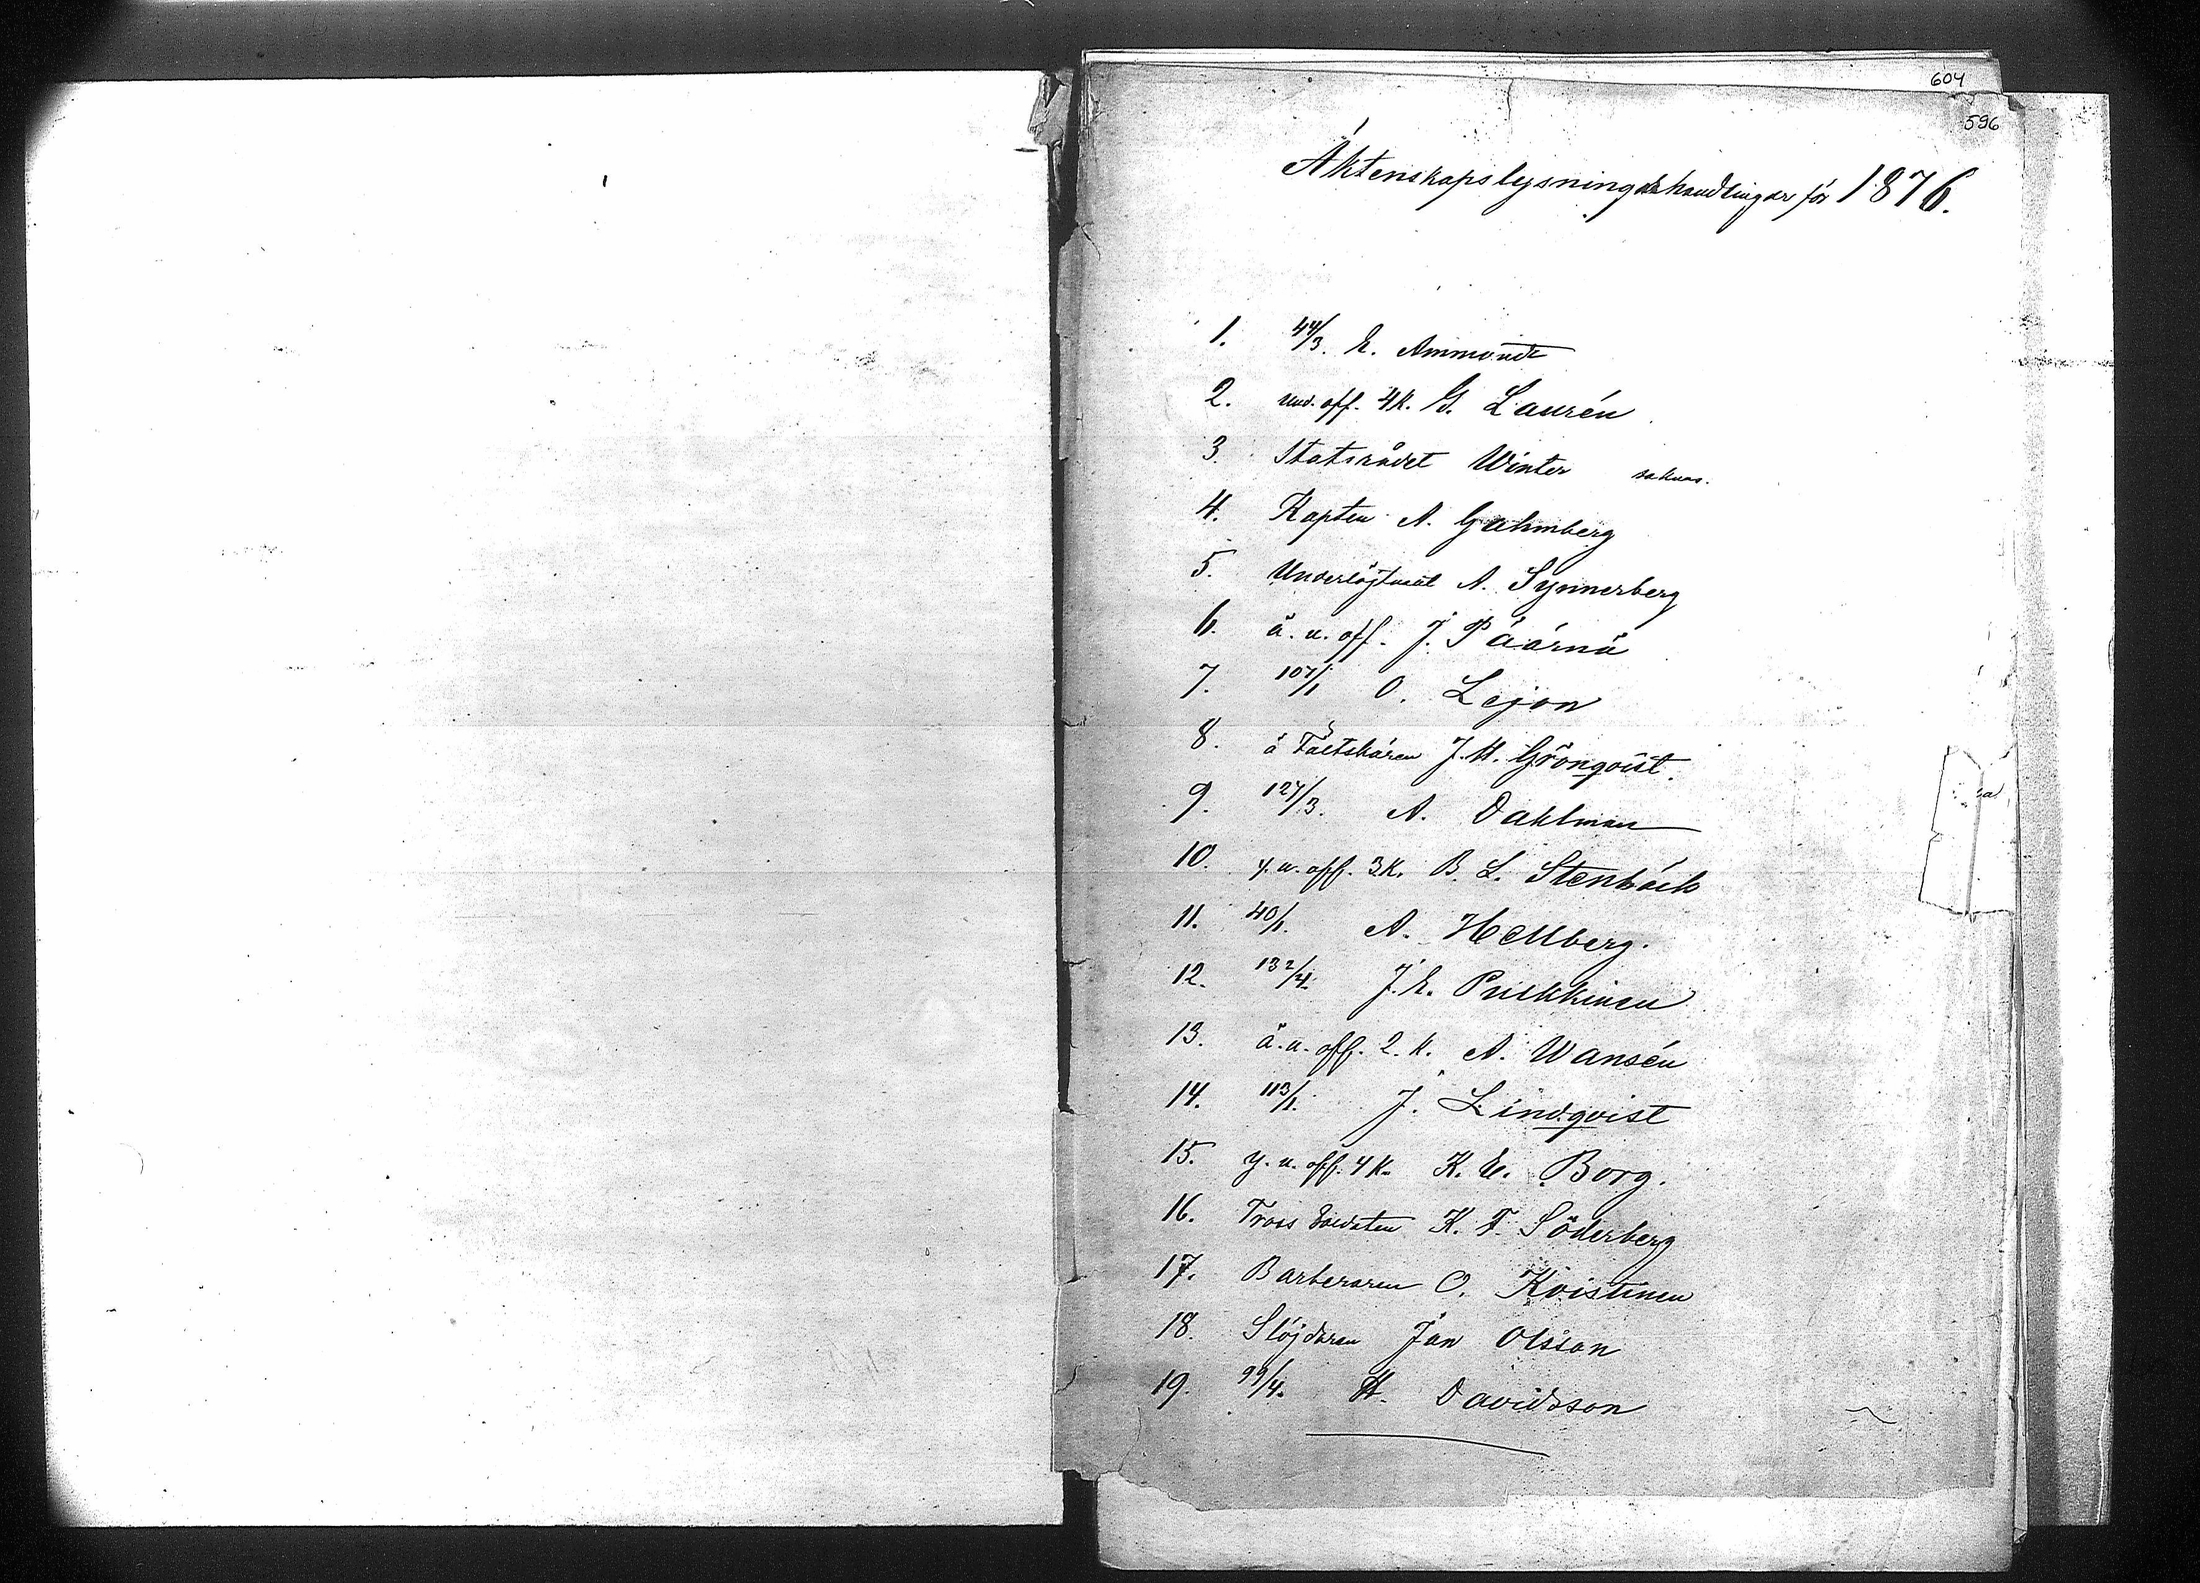 604
596
Äktenskapslysningshandlingar för 1876.
1. 44/3. E. Ammondt
2. und. off. 4 K. G. Laurén
3. Statsrådet Winter saknas.
4. Kapten A. Gahmberg
5. Underlöjtnant A. Synnerberg
6. ä. u. off. J. Päärnä
7. 107/1 O. Lejon
8. ä Fältskären J. H. Grönqvist.
9. 127/3. A. Dahlman
10. y. u. off. 3 K. B. L. Stenbäck
11. 40/1. A. Hellberg.
12. 132/4. J. E. Pulkkinen
13. ä. u. off. 2. K. A. Wansén
14. 113/1. J. Lindqvist
15. y. u. off. 4 K. K. E. Borg.
16. Tross Soldaten K. F. Söderberg
17. Barberaren O. Kvistinen
18. Slöjdaren Jan Olsson
19. 99/4. H. Davidsson